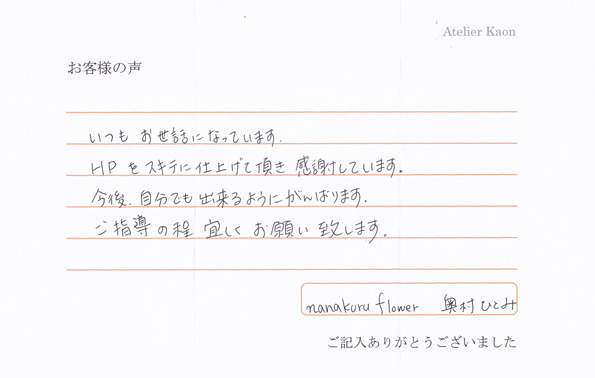 Atelier Kaon
お客様の声
いつも お世話になっています.
HP をステキに仕上げて頂き 感謝しています。
今後、自分でも出来るようにがんばります.
ご指導の程 宜しく お願い 致します.
nanakuru flower 奥村ひとみ
ご記入ありがとうございました